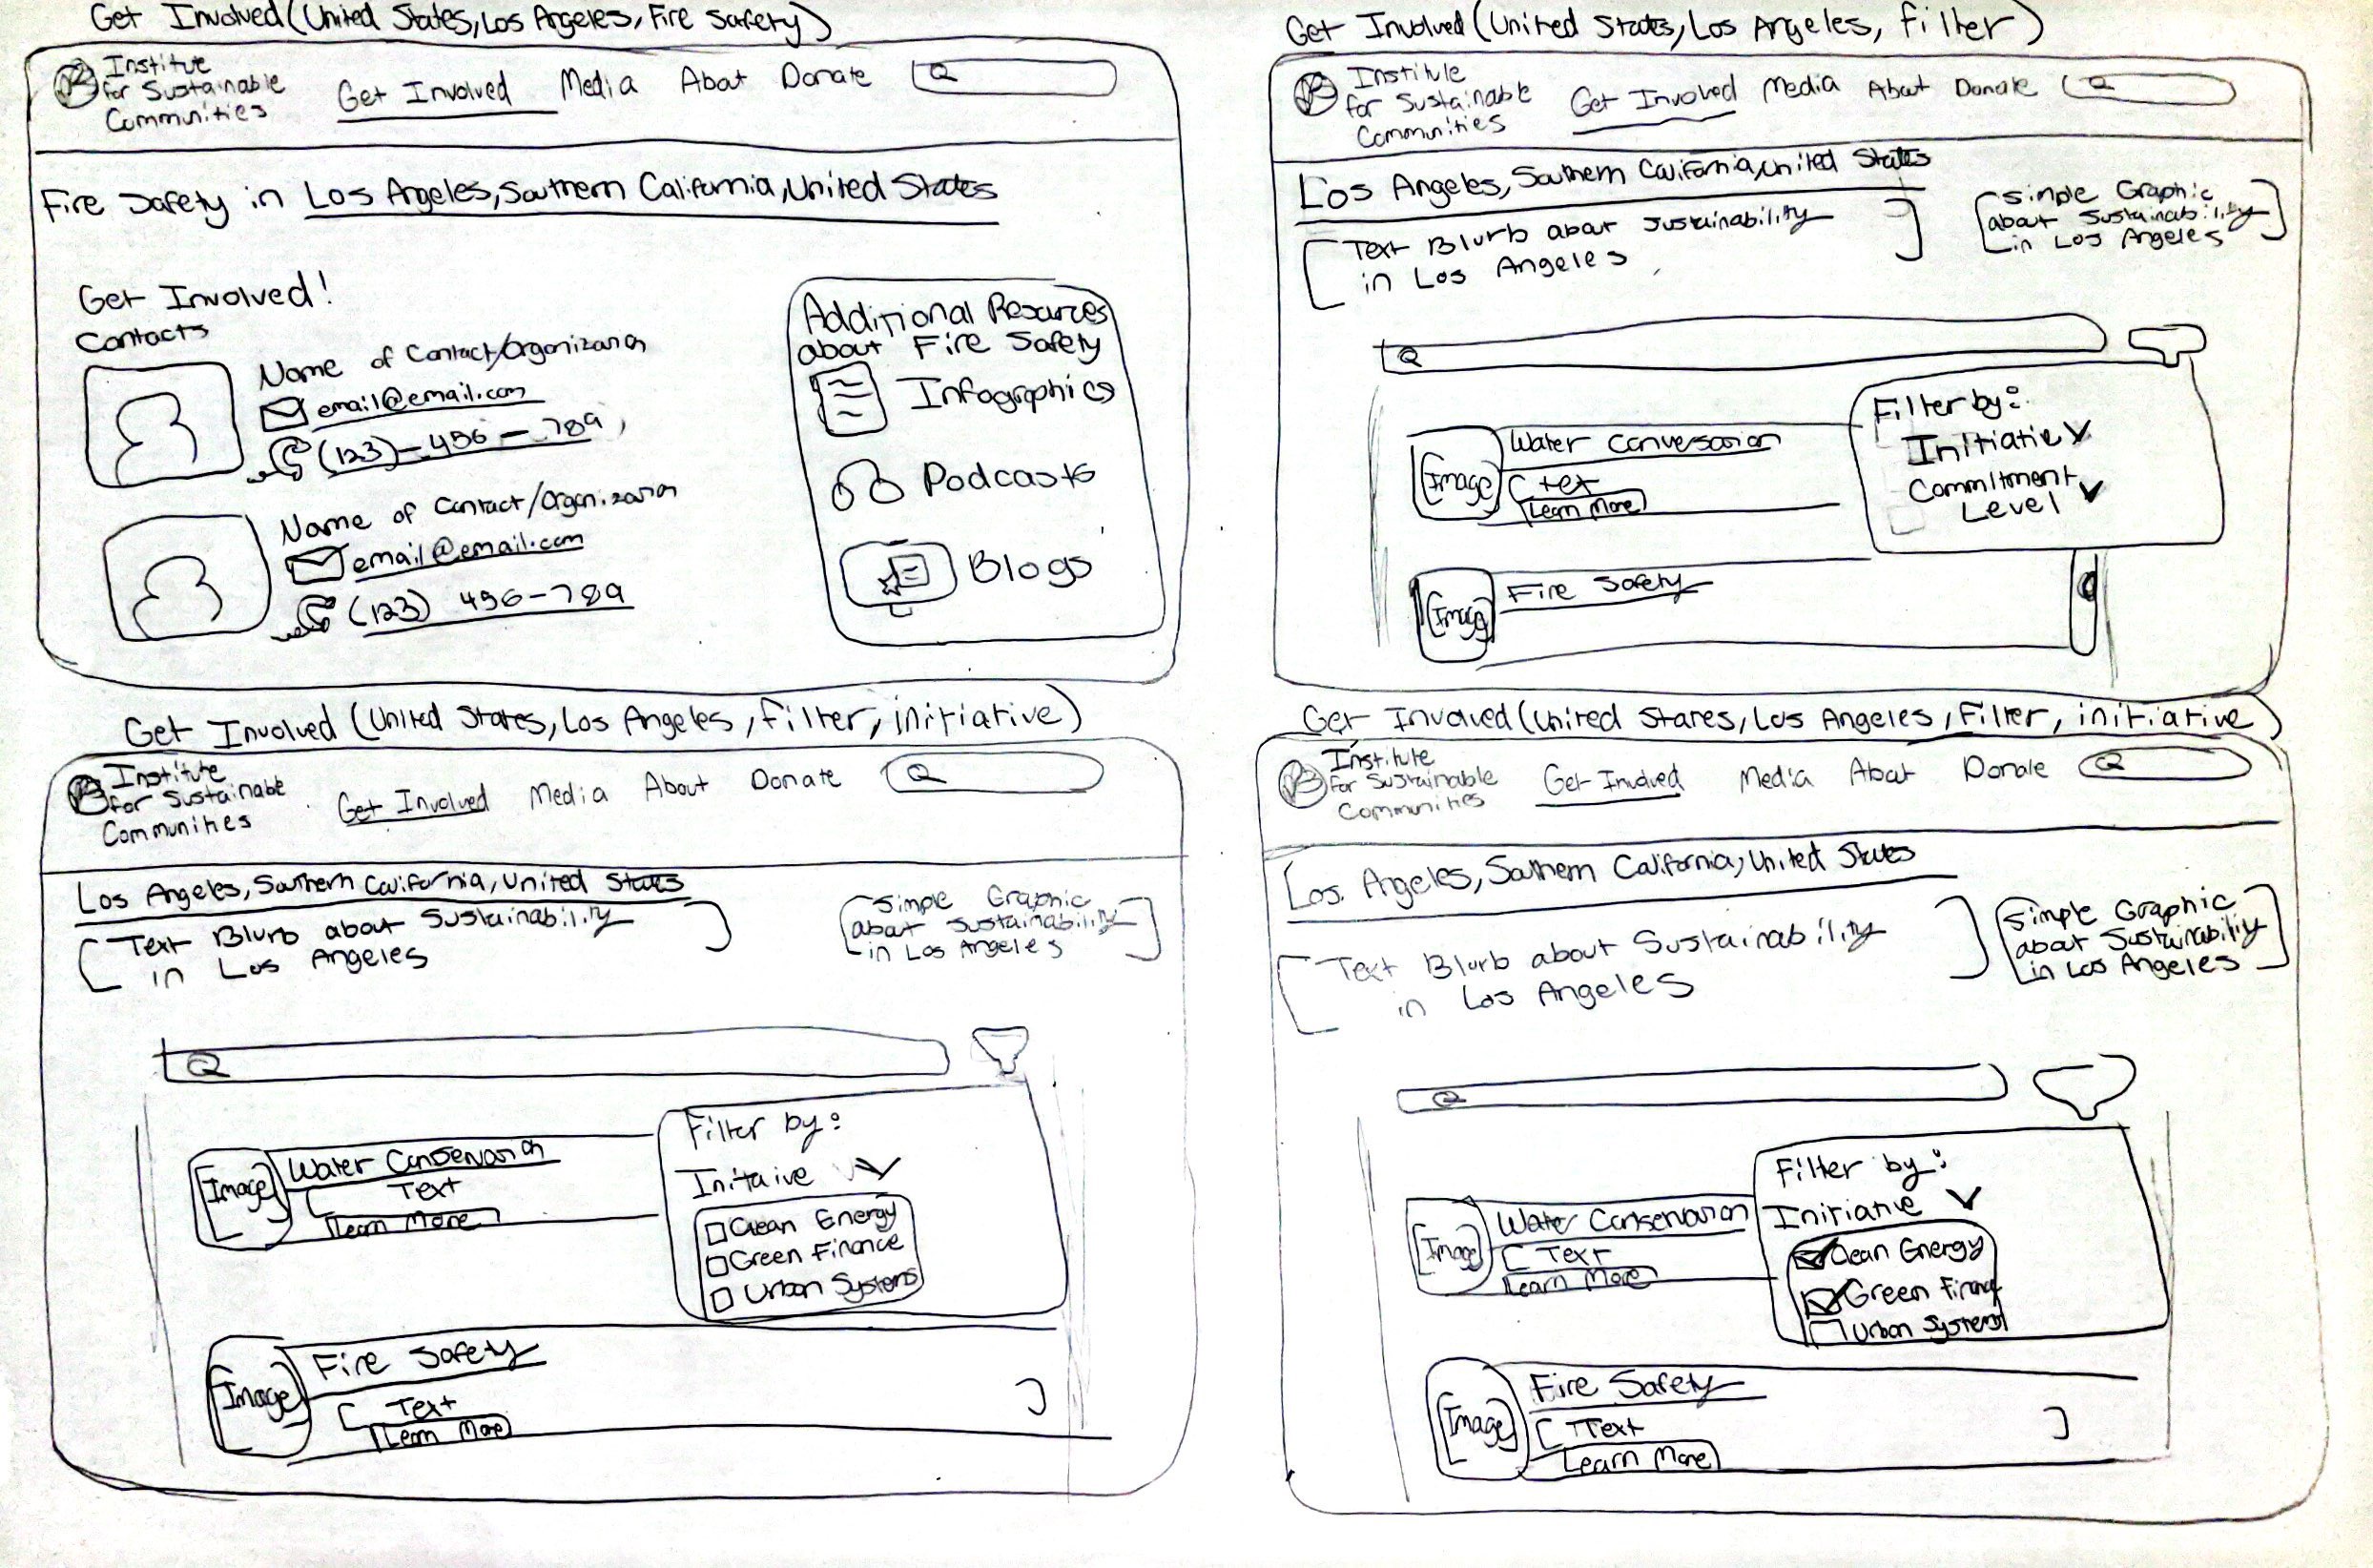 Get Involved (United States, Los Angeles, Fire Safety)
Institue
for Sustainable
Communities
Get Involved Media About Donate
Fire Safety in Los Angeles, Southern California, United States
Get Involved!
Contacts
Name of Contact/Organization
email@email.com
(123)-456-789
Name of Contact/Organization
email@email.com
(123) 456-789
Additional Resources
about Fire Safety
Infographics
Podcasts
Blogs
Get Involved (United States, Los Angeles, Filter)
Institute
for Sustainable
Communities
Get Involved Media About Donate
Los Angeles, Southern California, United States
Text Blurb about Sustainability
in Los Angeles
Simple Graphic
about Sustainability
in Los Angeles
Filter by:
Initiatie
Commitment
Level
Image
Water Conversation
Text
Learn More
Image
Fire Safety
Get Involved (United States, Los Angeles, Filter, initiative)
Institute
for Sustainable
Communities
Get Involved Media About Donate
Los Angeles, Southern California, United States
Text Blurb about Sustainability
in Los Angeles
Simple Graphic
about Sustainability
in Los Angeles
Filter by:
Initaive
Clean Energy
Green Finance
Urban Systems
Image
Water Conservation
Text
Learn More
Image
Fire Safety
Text
Learn More
Get Involved (United States, Los Angeles, Filter, initiative)
Institute
for Sustainable
Communities
Get Involved Media About Donate
Los Angeles, Southern California, United States
Text Blurb about Sustainability
in Los Angeles
Simple Graphic
about Sustainability
in Los Angeles
Filter by:
Initiative
Clean Energy
Green Finance
Urban Systems
Image
Water Conservation
Text
Learn More
Image
Fire Safety
Text
Learn More